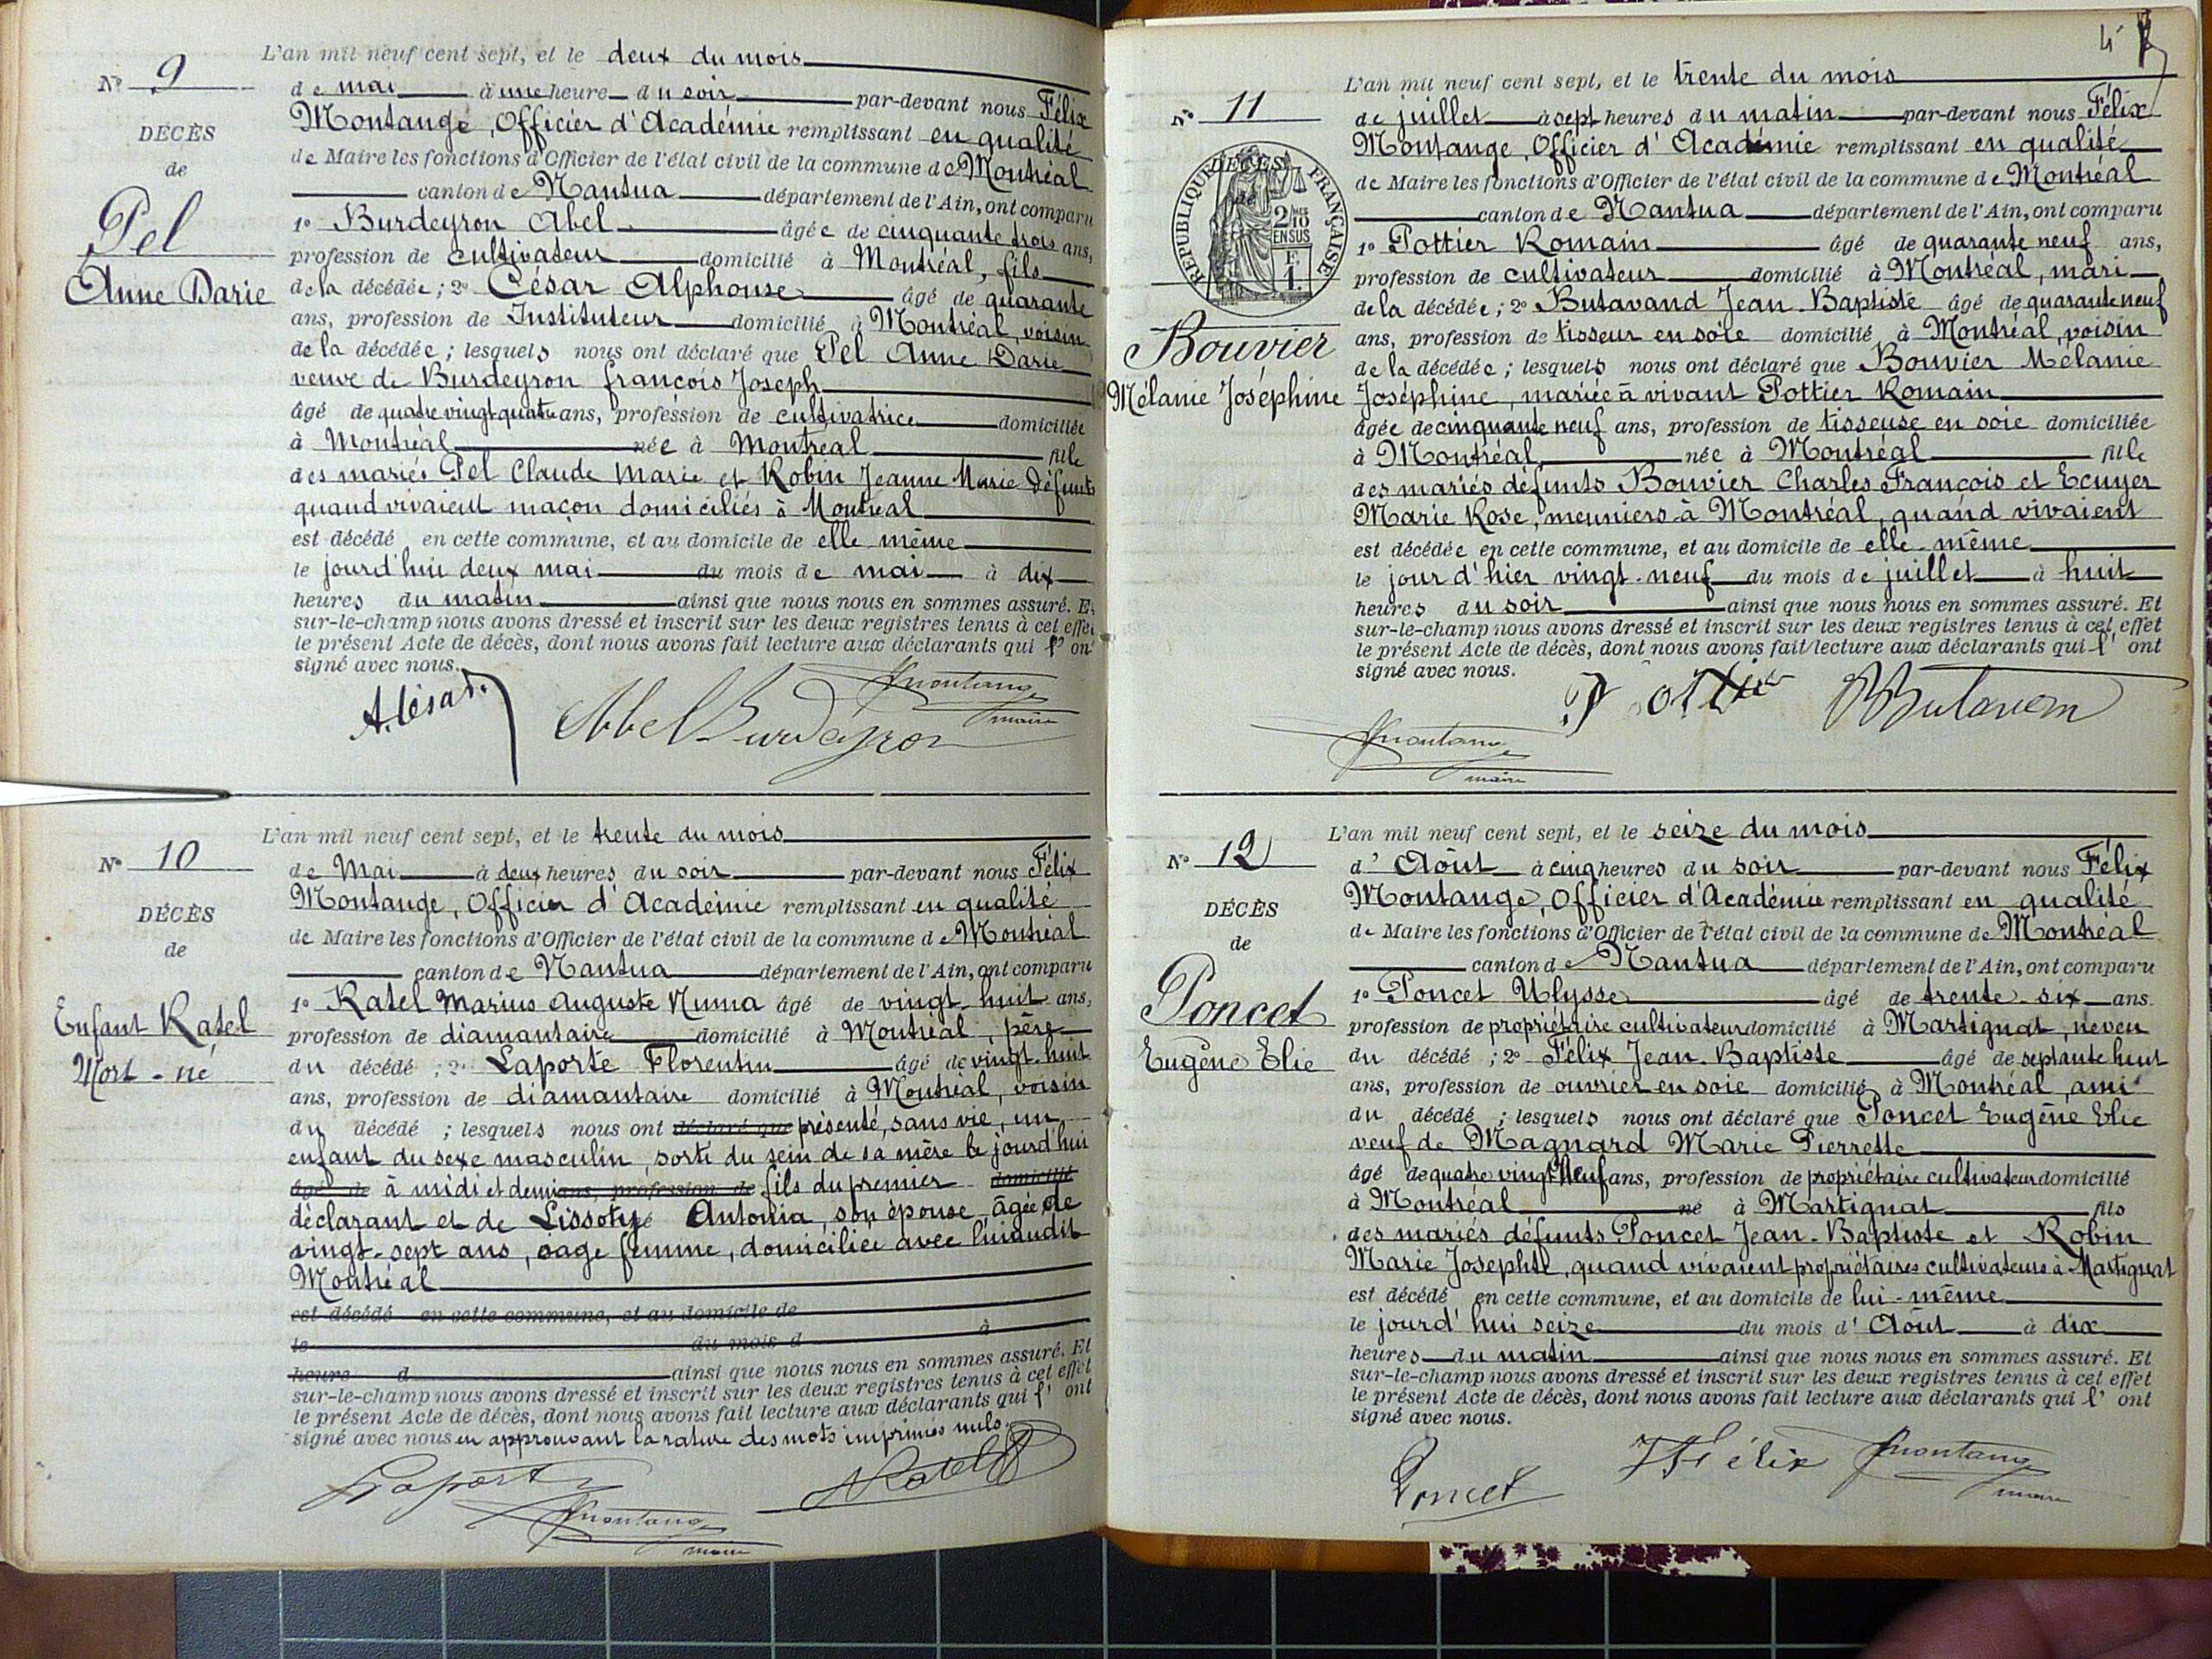 L'an mil neuf cent sept, et le deux du mois
N° 9
de mai à une heure du soir par-devant nous Félix
Montange, Officier d'Académie remplissant en qualité
DÉCÈS
de Maire les fonctions d'Officier de l'état civil de la commune de Montréal
de
canton de Nantua département de l'Ain, ont comparu
Pel
1° Burdeyron Abel âgé de cinquante trois ans,
profession de cultivateur domicilié à Montréal, fils
Anne Darie
de la décédée; 2° César Alphonse âgé de quarante
ans, profession de Instituteur domicilié à Montréal, voisin
de la décédée; lesquels nous ont déclaré que Pel Anne Darie
veuve de Burdeyron françois Joseph
âgé de quatre vingt quatre ans, profession de cultivatrice domiciliée
à Montréal née à Montréal fille
des mariés Pel Claude Marie et Robin Jeanne Marie défunts
quand vivaient maçon domiciliés à Montréal
est décédé en cette commune, et au domicile de elle même
le jourd'hui deux mai du mois de mai à dix
heures du matin ainsi que nous nous en sommes assuré. Et
sur-le-champ nous avons dressé et inscrit sur les deux registres tenus à cet effet
le présent Acte de décès, dont nous avons fait lecture aux déclarants qui l'ont
signé avec nous.
A. César
Abel Burdeyron
Montange
maire
L'an mil neuf cent sept, et le trente du mois
N° 10
de Mai à deux heures du soir par-devant nous Félix
Montange, Officier d'Académie remplissant en qualité
DÉCÈS
de Maire les fonctions d'Officier de l'état civil de la commune de Montréal
de
canton de Nantua département de l'Ain, ont comparu
1° Ratel Marius Auguste Numa âgé de vingt-huit ans,
Enfant Ratel
profession de diamantaire domicilié à Montréal, père
Mort-né
du décédé; 2° Laporte Florentin âgé de vingt-huit
ans, profession de diamantaire domicilié à Montréal, voisin
du décédé; lesquels nous ont déclaré que présenté, sans vie, un
enfant du sexe masculin, sorti du sein de sa mère le jourd'hui
âgé de à midi et demi ans, profession de fils du premier domicilié
déclarant et de Lissoty né Antonia, son épouse, âgée de
vingt-sept ans, sage femme, domiciliée avec lui audit
Montréal
est décédé en cette commune, et au domicile de
le du mois d à
heure d ainsi que nous nous en sommes assuré. Et
sur-le-champ nous avons dressé et inscrit sur les deux registres tenus à cet effet
le présent Acte de décès, dont nous avons fait lecture aux déclarants qui l'ont
signé avec nous en approuvant la rature des mots imprimés nuls.
Laporte
Ratel
Montange
maire
4
L'an mil neuf cent sept, et le trente du mois
N° 11
de juillet à sept heures du matin par-devant nous Félix
Montange, Officier d'Académie remplissant en qualité
DÉCÈS
de
RÉPUBLIQUE FRANÇAISE
2/10 MES
EN SUS
F. 1.
de Maire les fonctions d'Officier de l'état civil de la commune de Montréal
canton de Nantua département de l'Ain, ont comparu
1° Pottier Romain âgé de quarante neuf ans,
profession de cultivateur domicilié à Montréal, mari
de la décédée; 2° Butavand Jean-Baptiste âgé de quarante neuf
Bouvier
ans, profession de tisseur en soie domicilié à Montréal, voisin
de la décédée; lesquels nous ont déclaré que Bouvier Mélanie
Mélanie Joséphine
Joséphine, mariée à vivant Pottier Romain
âgée de cinquante neuf ans, profession de tisseuse en soie domiciliée
à Montréal née à Montréal fille
des mariés défunts Bouvier Charles François et Ecuyer
Marie Rose, meuniers à Montréal, quand vivaient
est décédée en cette commune, et au domicile de elle-même
le jour d'hier vingt-neuf du mois de juillet à huit
heures du soir ainsi que nous nous en sommes assuré. Et
sur-le-champ nous avons dressé et inscrit sur les deux registres tenus à cet effet
le présent Acte de décès, dont nous avons fait lecture aux déclarants qui l'ont
signé avec nous.
Pottier
Butavan
Montange
maire
L'an mil neuf cent sept, et le seize du mois
N° 12
d'Août à cinq heures du soir par-devant nous Félix
Montange, Officier d'Académie remplissant en qualité
DÉCÈS
de Maire les fonctions d'Officier de l'état civil de la commune de Montréal
de
canton de Nantua département de l'Ain, ont comparu
Poncet
1° Poncet Ulysse âgé de trente-six ans.
profession de propriétaire cultivateur domicilié à Martignat, neveu
Eugène Elie
du décédé; 2° Félix Jean-Baptiste âgé de septante huit
ans, profession de ouvrier en soie domicilié à Montréal, ami
du décédé; lesquels nous ont déclaré que Poncet Eugène Elie
veuf de Magnard Marie Pierrette
âgé de quatre vingt neuf ans, profession de propriétaire cultivateur domicilié
à Montréal né à Martignat fils
des mariés défunts Poncet Jean-Baptiste et Robin
Marie Josephte, quand vivaient propriétaires cultivateurs à Martignat
est décédé en cette commune, et au domicile de lui-même
le jourd'hui seize du mois d'Août à dix
heures du matin ainsi que nous nous en sommes assuré. Et
sur-le-champ nous avons dressé et inscrit sur les deux registres tenus à cet effet
le présent Acte de décès, dont nous avons fait lecture aux déclarants qui l'ont
signé avec nous.
Poncet
J Félix
Montange
maire